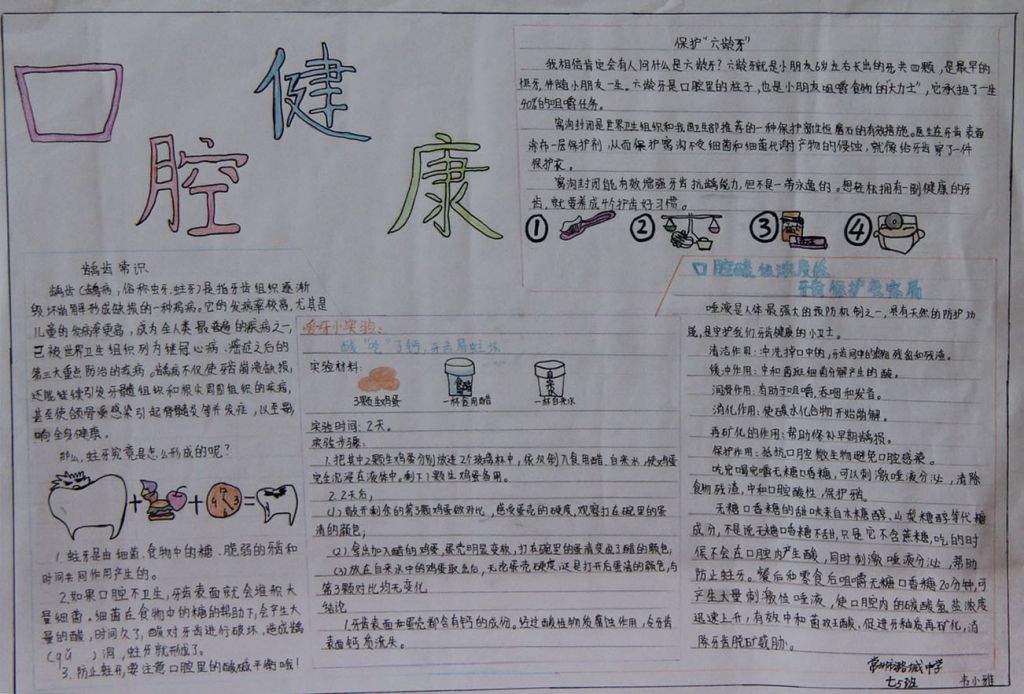 口腔健康
保护“六龄牙”
我相信肯定会有人问什么是六龄牙？六龄牙就是小朋友6岁左右长出的牙共四颗，是最早的
恒牙，伴随小朋友一生。六龄牙是口腔里的柱子，也是小朋友咀嚼食物的“大力士”，它承担了一生
40%的咀嚼任务。
窝沟封闭是世界卫生组织和我国卫生部推荐的一种保护新生恒磨石的有效措施。医生在牙齿表面
涂布一层保护剂，从而保护窝沟不受细菌和细菌代谢产物的侵蚀，就像给牙齿穿了一件
保护衣。
窝沟封闭能有效增强牙齿抗龋能力，但不是一劳永逸的。想轻松拥有一副健康的牙
齿，就要养成4个护齿好习惯。
① ② ③ ④
龋齿常识
龋齿（龋病，俗称虫牙、蛀牙）是指牙齿组织逐渐
毁坏崩解形成缺损的一种疾病。它的发病率较高，尤其是
儿童的发病率更高，成为全人类最普遍的疾病之一，
已被世界卫生组织列为继冠心病、癌症之后的
第三大重点防治的疾病。龋病不仅使牙齿崩溃缺损，
还能继续引发牙髓组织和根尖周围组织的疾病，
甚至使颌骨受感染引起骨髓炎等并发症，以至影
响全身健康。
那么，蛀牙究竟是怎么形成的呢？
+ + =
1. 蛀牙是由细菌、食物中的糖、脆弱的牙齿和
时间共同作用产生的。
2. 如果口腔不卫生，牙齿表面就会堆积大
量细菌。细菌在食物中的糖的帮助下，会产生大
量的酸，时间久了，酸对牙齿进行破坏，造成龋
（qǔ）洞，蛀牙就形成了。
3. 防止蛀牙，要注意口腔里的酸碱平衡哦！
牙小实验：
酸“吃”了钙，牙齿易蛀坏
实验材料：
食醋
自来水
3颗生鸡蛋 一杯食用醋 一杯自来水
实验时间：2天。
实验步骤：
1. 把其中2颗生鸡蛋分别放进2个玻璃杯中，依次倒入食用醋、自来水，使鸡蛋
完全沉浸在液体中。剩下1颗生鸡蛋备用。
2. 2天后，
(1) 敲开剩余的第3颗鸡蛋做对比，感受蛋壳的硬度，观察打在碗里的蛋
清的颜色；
(2) 食出加入醋的鸡蛋，蛋壳明显变软，打在碗里的蛋清变成了醋的颜色；
(3) 放在自来水中的鸡蛋取出后，无论蛋壳硬度还是打开后蛋清的颜色，与
第3颗对比均无变化
结论
1. 牙齿表面和蛋壳都含有钙的成份。经过酸性物质腐蚀作用，会令牙齿
表面钙质流失。
口腔酸性浓度低
牙齿保护
唾液是人体最强大的预防机制之一，具有天然的防护功
能，是守护我们牙齿健康的小卫士。
清洁作用：冲洗掉口中的，牙齿间中的食物残留和残渣。
缓冲作用：中和菌斑细菌分解产生的酸。
润滑作用：有助于咀嚼、吞咽和发音。
消化作用：使碳水化合物开始崩解。
再矿化的作用：帮助修补早期龋损。
保护作用：抵抗口腔微生物避免口腔感染。
吃完喝完嚼无糖口香糖，可以刺激唾液分泌，清除
食物残渣，中和口腔酸性，保护牙齿。
无糖口香糖的甜味来自木糖醇、山梨糖醇等代糖
成分，不是说无糖口香糖不甜，只是它不含蔗糖，吃的时
候不会在口腔内产生酸，同时刺激唾液分泌，帮助
防止蛀牙。餐后和零食后咀嚼无糖口香糖20分钟，可
产生大量刺激性唾液，使口腔内的碳酸氢盐浓度
迅速上升，有效中和菌斑酸，促进牙釉质再矿化，消
除牙齿脱矿威胁。
常州市 城中学
七5班
韦小雅